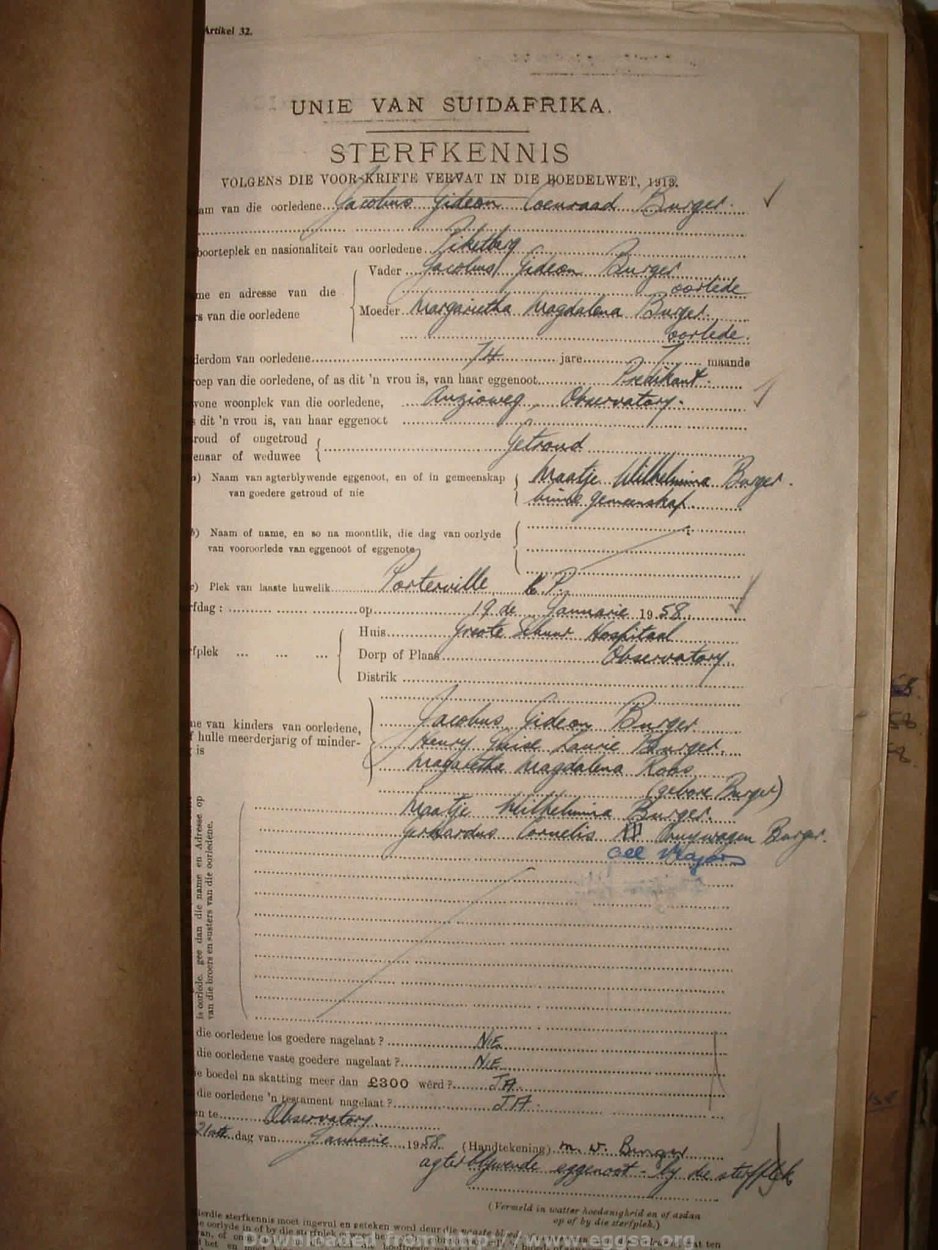 Artikel 32.
UNIE VAN SUIDAFRIKA.
STERFKENNIS
VOLGENS DIE VOOR-KRIFTE VERVAT IN DIE BOEDELWET, 1913.
am van die oorledene Jacobus Gideon Coenraad Burger.
boorteplek en nasionaliteit van oorledene Piketberg
Vader Jacobus Gideon Burger
oorlede
me en adresse van die
rs van die oorledene
Moeder Margarietha Magdalena Burger.
oorlede.
derdom van oorledene 74 jare 7 maande
roep van die oorledene, of as dit 'n vrou is, van haar eggenoot Predikant.
wone woonplek van die oorledene, Anzioweg, Observatory.
s dit 'n vrou is, van haar eggenoot
roud of ongetroud Getroud
enaar of weduwee
a) Naam van agterblywende eggenoot, en of in gemeenskap Maatje Wilhelmina Burger.
van goedere getroud of nie binne gemeenskap.
b) Naam of name, en so na moontlik, die dag van oorlyde
van vooroorlede van eggenoot of eggenote
c) Plek van laaste huwelik Porterville K.P.
rfdag : op 19 de Januarie 1958.
Huis Groote Schuur Hospitaal
rfplek ... ... ... Dorp of Plaas Observatory
Distrik
Jacobus Gideon Burger
ne van kinders van oorledene,
f hulle meerderjarig of minder- Henry Laurie Burger.
is
Magarietha Magdalena Roos
(gebore Burger)
Maatje Wilhelmina Burger.
Gerhardus Cornelis Cruywagen Burger.
all Majors
is oorlede, gee dan die name en Adresse op
van die broers en susters van die oorledene.
die oorledene los goedere nagelaat ? NIE
die oorledene vaste goedere nagelaat ? NIE
e boedel na skatting meer dan £300 wêrd ? JA
die oorledene 'n testament nagelaat ? JA.
en te Observatory.
21ste dag van Januarie 1958. (Handtekening) M. W. Burger
agterblywende eggenoot - by die sterfplek
(Vermeld in watter hoedanigheid en of asdan
op of by die sterfplek.)
ierdie sterfkennis moet ingevul en geteken word deur die naaste bloed
Downloaded from http://www.eggsa.org